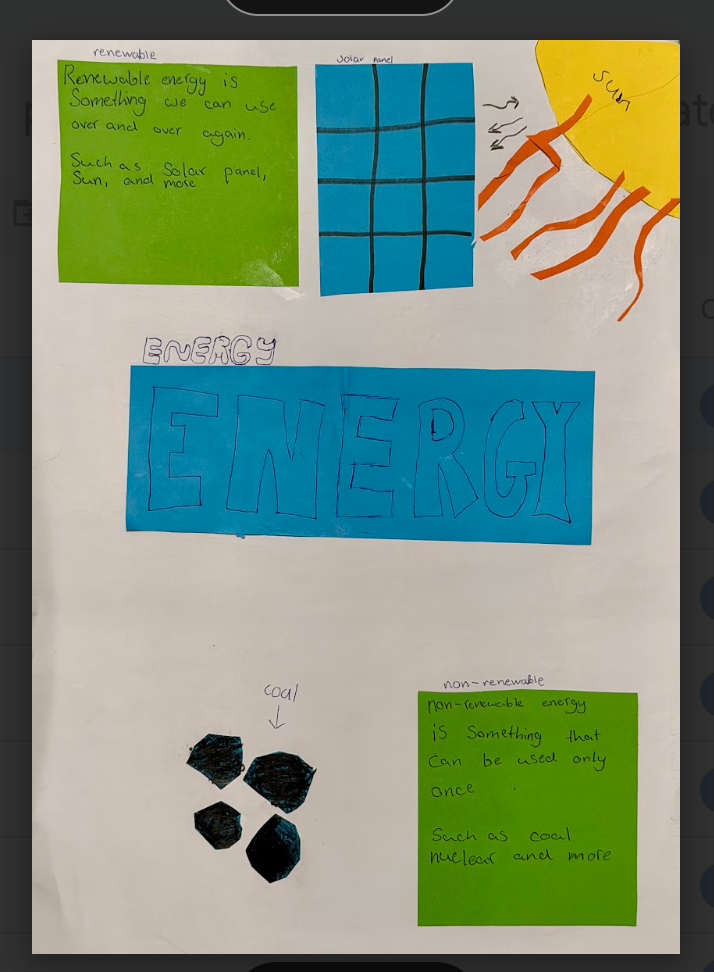 renewable
Renewable energy is
Something we can use
over and over again.
Such as Solar panel,
Sun, and more
Solar panel
Sun
ENERGY
ENERGY
coal
non-renewable
non-renewable energy
is Something that
Can be used only
once
Such as coal
nuclear and more